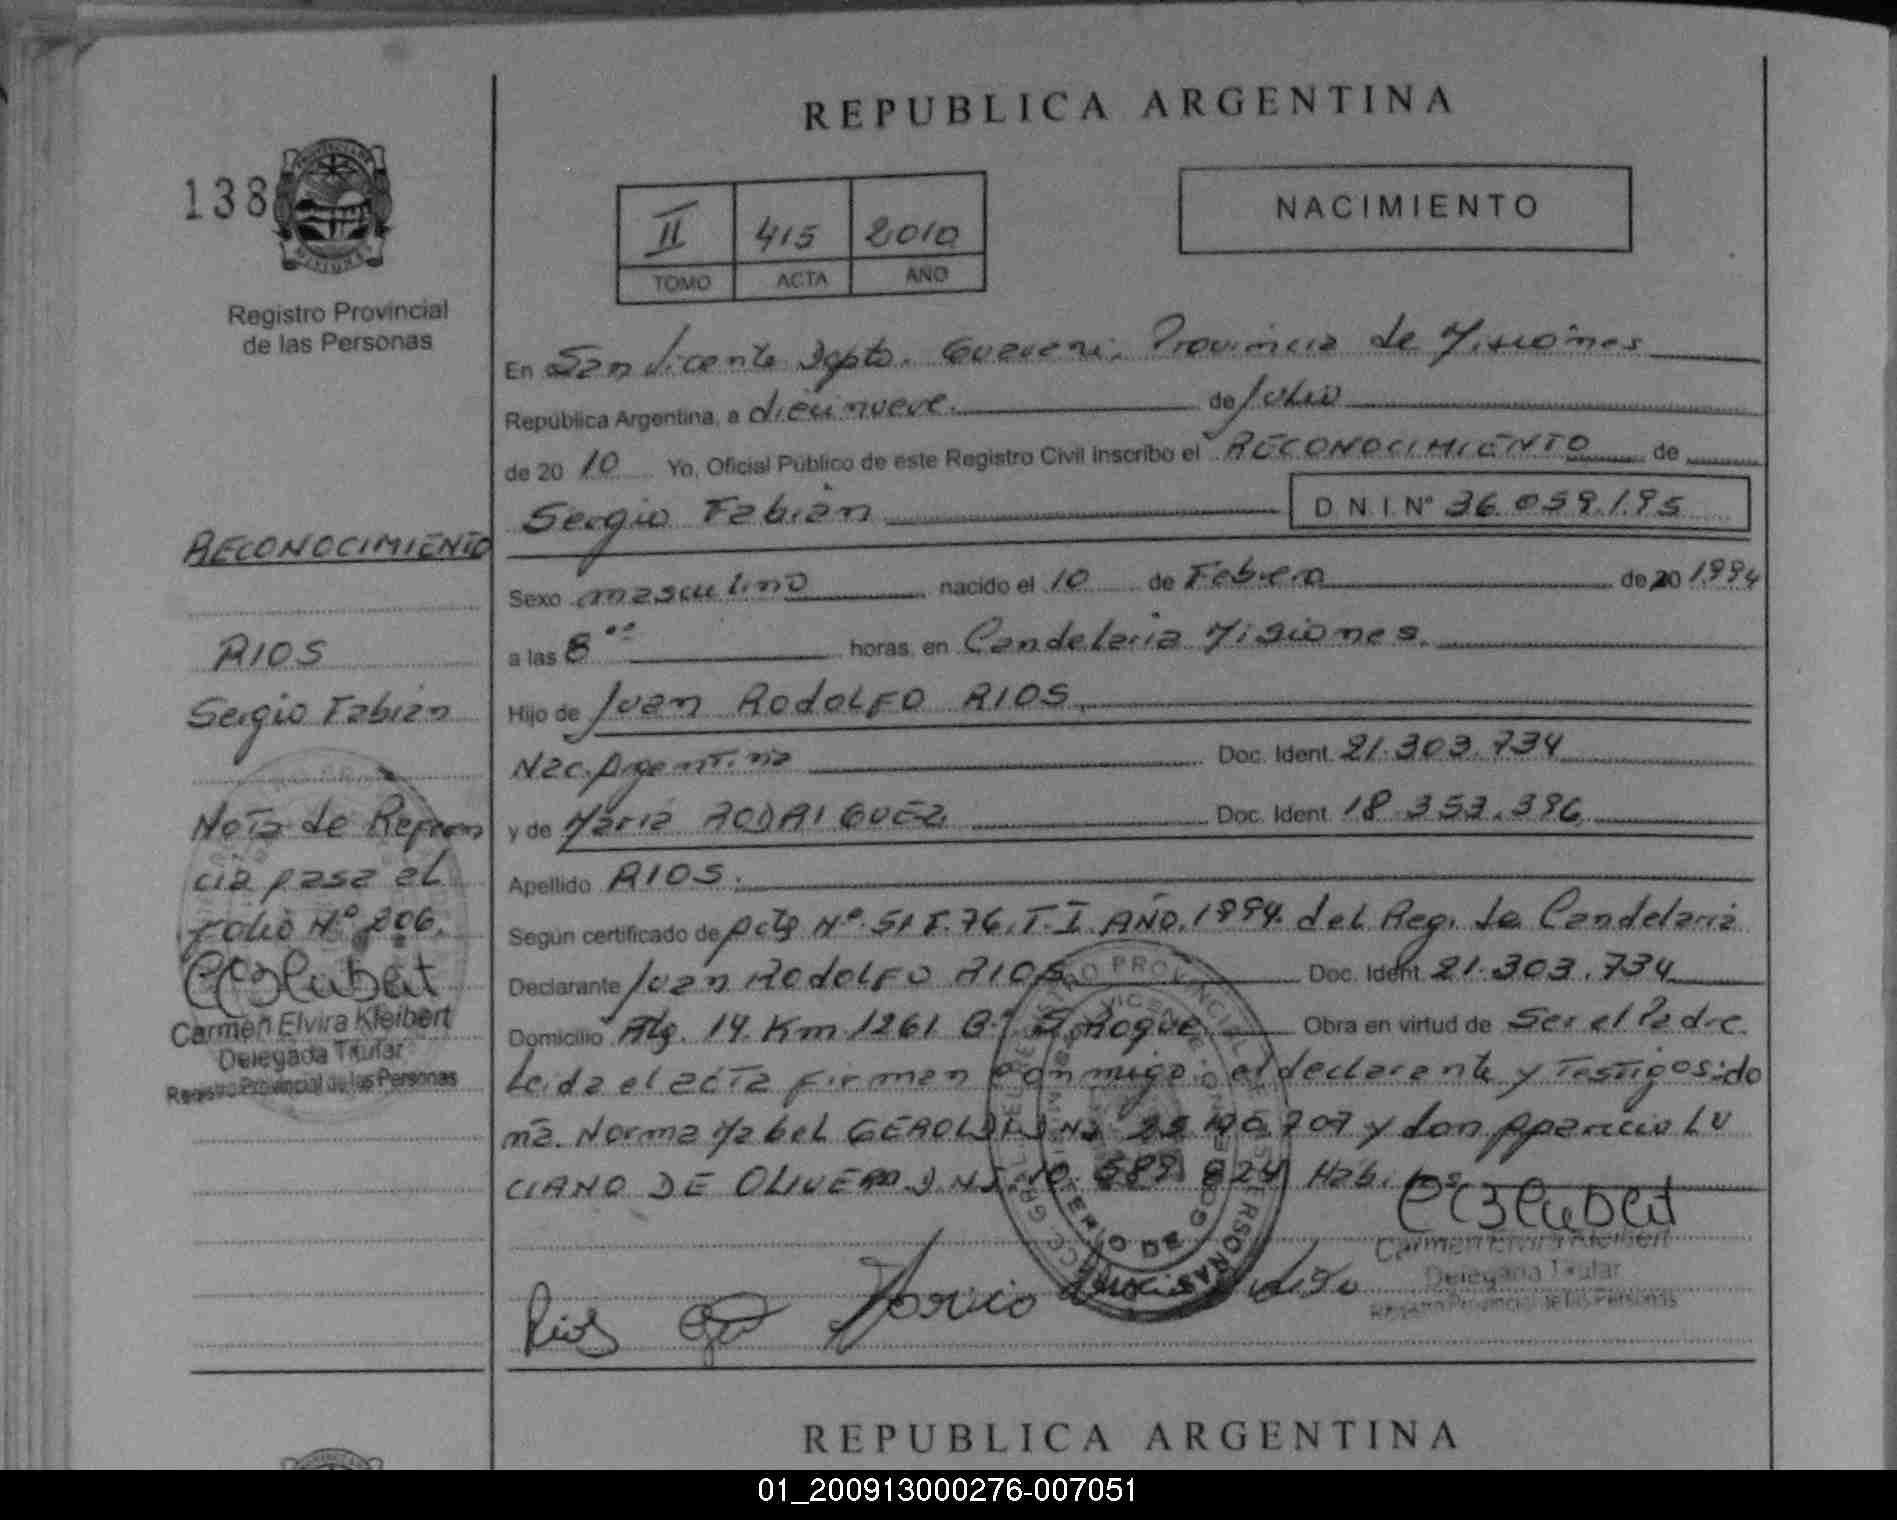 REPUBLICA ARGENTINA
138
NACIMIENTO
II 415 2010
TOMO ACTA AÑO
Registro Provincial
de las Personas
En San Vicente Dpto. Guarani, Provincia de Misiones
República Argentina, a diecinueve de Julio
de 20 10 Yo, Oficial Público de este Registro Civil inscribo el RECONOCIMIENTO de
Sergio Fabián D N I Nº 36.059.195
Sexo masculino nacido el 10 de Febrero de 20 1994
a las 8 horas, en Candelaria Misiones
Hijo de Juan RODOLFO RIOS
Nac. Argentina Doc. Ident. 21.303.734
y de Maria RODRIGUEZ Doc. Ident. 18.353.396
Apellido RIOS.
Según certificado de Acta Nº 51 F.76. T.I AÑO.1994. del Reg. La Candelaria
Declarante Juan RODOLFO RIOS Doc. Ident. 21.303.734
Domicilio Rta. 14. Km 1261 Bº S. Roque Obra en virtud de Ser el Padre.
Leida el acta firman conmigo el declarante y Testigos: do
ña. Norma Mabel GEROLD DNI 707 y don Aparicio LU
CIANO DE OLIVERA DNI. 10. 689. 824 Habiles
Rios
CEKleibert
Carmen Elvira Kleibert
Delegada Titular
Registro Provincial de las Personas
RECONOCIMIENTO
RIOS
Sergio Fabián
Nota de Referen
cia pasa al
folio Nº 206.
CEKleibert
Carmen Elvira Kleibert
Delegada Titular
Registro Provincial de las Personas
REPUBLICA ARGENTINA
01_200913000276-007051